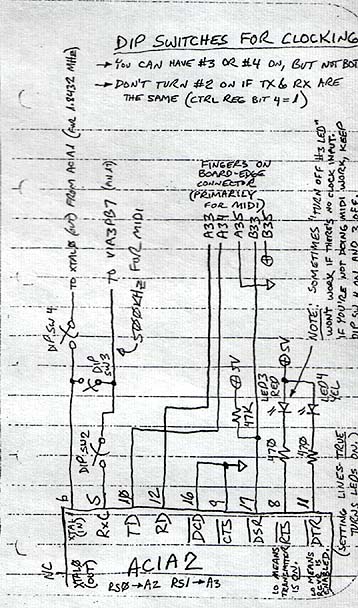 DIP SWITCHES FOR CLOCKING
→ YOU CAN HAVE #3 OR #4 ON, BUT NOT BOT
→ DON'T TURN #2 ON IF TX & RX ARE
THE SAME (CTRL REG BIT 4=1)
FINGERS ON
BOARD-EDGE
CONNECTOR
(PRIMARILY
FOR MIDI)
A33
A34
A35
B33
B35
TO XTAL0 (OUT) FROM ACIA1 (FOR 1.8432 MHz)
TO VIA3PB7
500kHz FOR MIDI
NOTE: SOMETIMES "TURN OFF #3 LED"
WON'T WORK IF THERE'S NO CLOCK INPUT.
IF YOU'RE NOT DOING MIDI WORK, KEEP
DIP SW 4 ON AND 3 OFF.
DIP SW 4
DIP
SW3
DIP SW2
5V
47K
5V
LED3
RED
LED4
YEL
470
470
6
5
10
12
16
9
17
8
11
XTAL1
(IN)
RxC
TD
RD
DCD
CTS
DSR
RTS
DTR
NC
XTAL0
(OUT)
ACIA2
RS0→A2 RS1→A3
LO MEANS
TRANSMITTER
IS ON.
LO MEANS
RCVR IS
ENABLED.
(SETTING LINES TRUE
TURNS LEDS ON.)